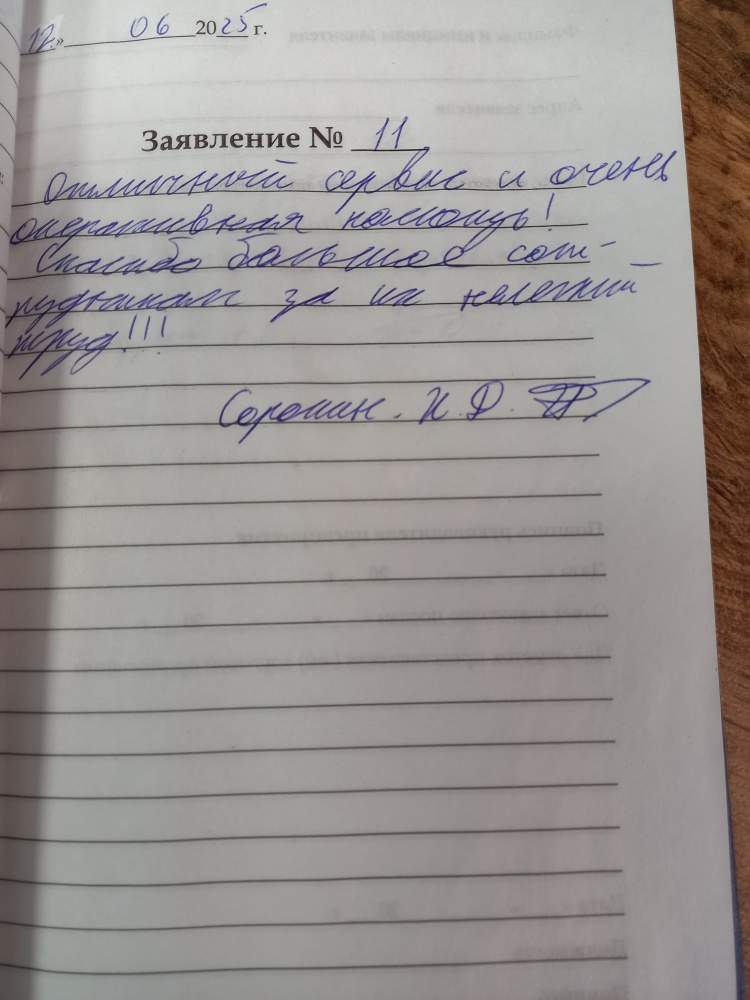 12 » 06 2025 г.
Заявление № 11
Отличный сервис и очень
оперативная помощь!
Спасибо большое сот-
рудникам за их нелегкий
труд!!!
Сорокин. И. Д.